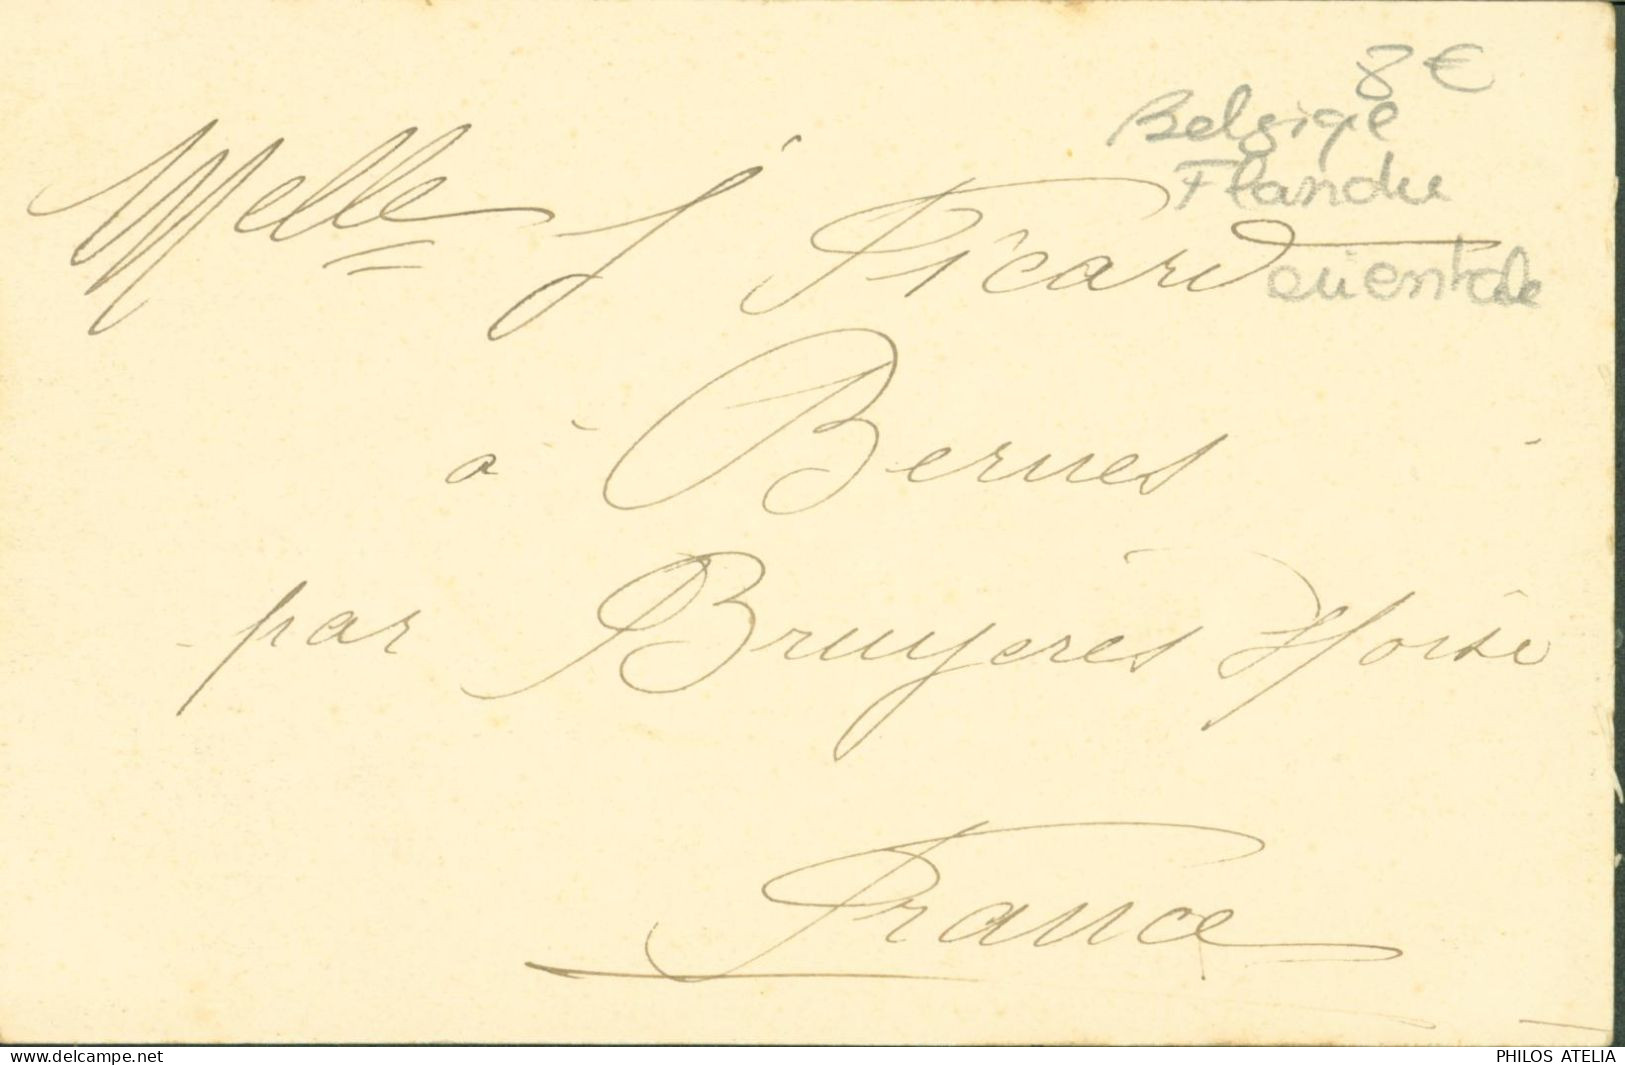 8 €
Belgique
Flandre
orientale
Melle J Picard
à Bernes
par Bruyères s/oise
France
delcampe.net
PHILOS ATELIA